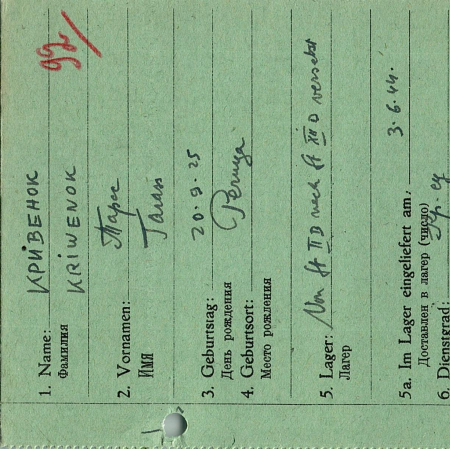 92
1. Name: КРИВЕНОК
Фамилия KRIWENOK
2. Vornamen: Тарас
Имя Taras
3. Geburtstag: 20.9.25
День рождения
4. Geburtsort:
Место рождения
5. Lager: Von St II D nach St XII D versetzt
Лагер
5a. Im Lager eingeliefert am: 3.6.44.
Доставлен в лагер (число)
6. Dienstgrad: